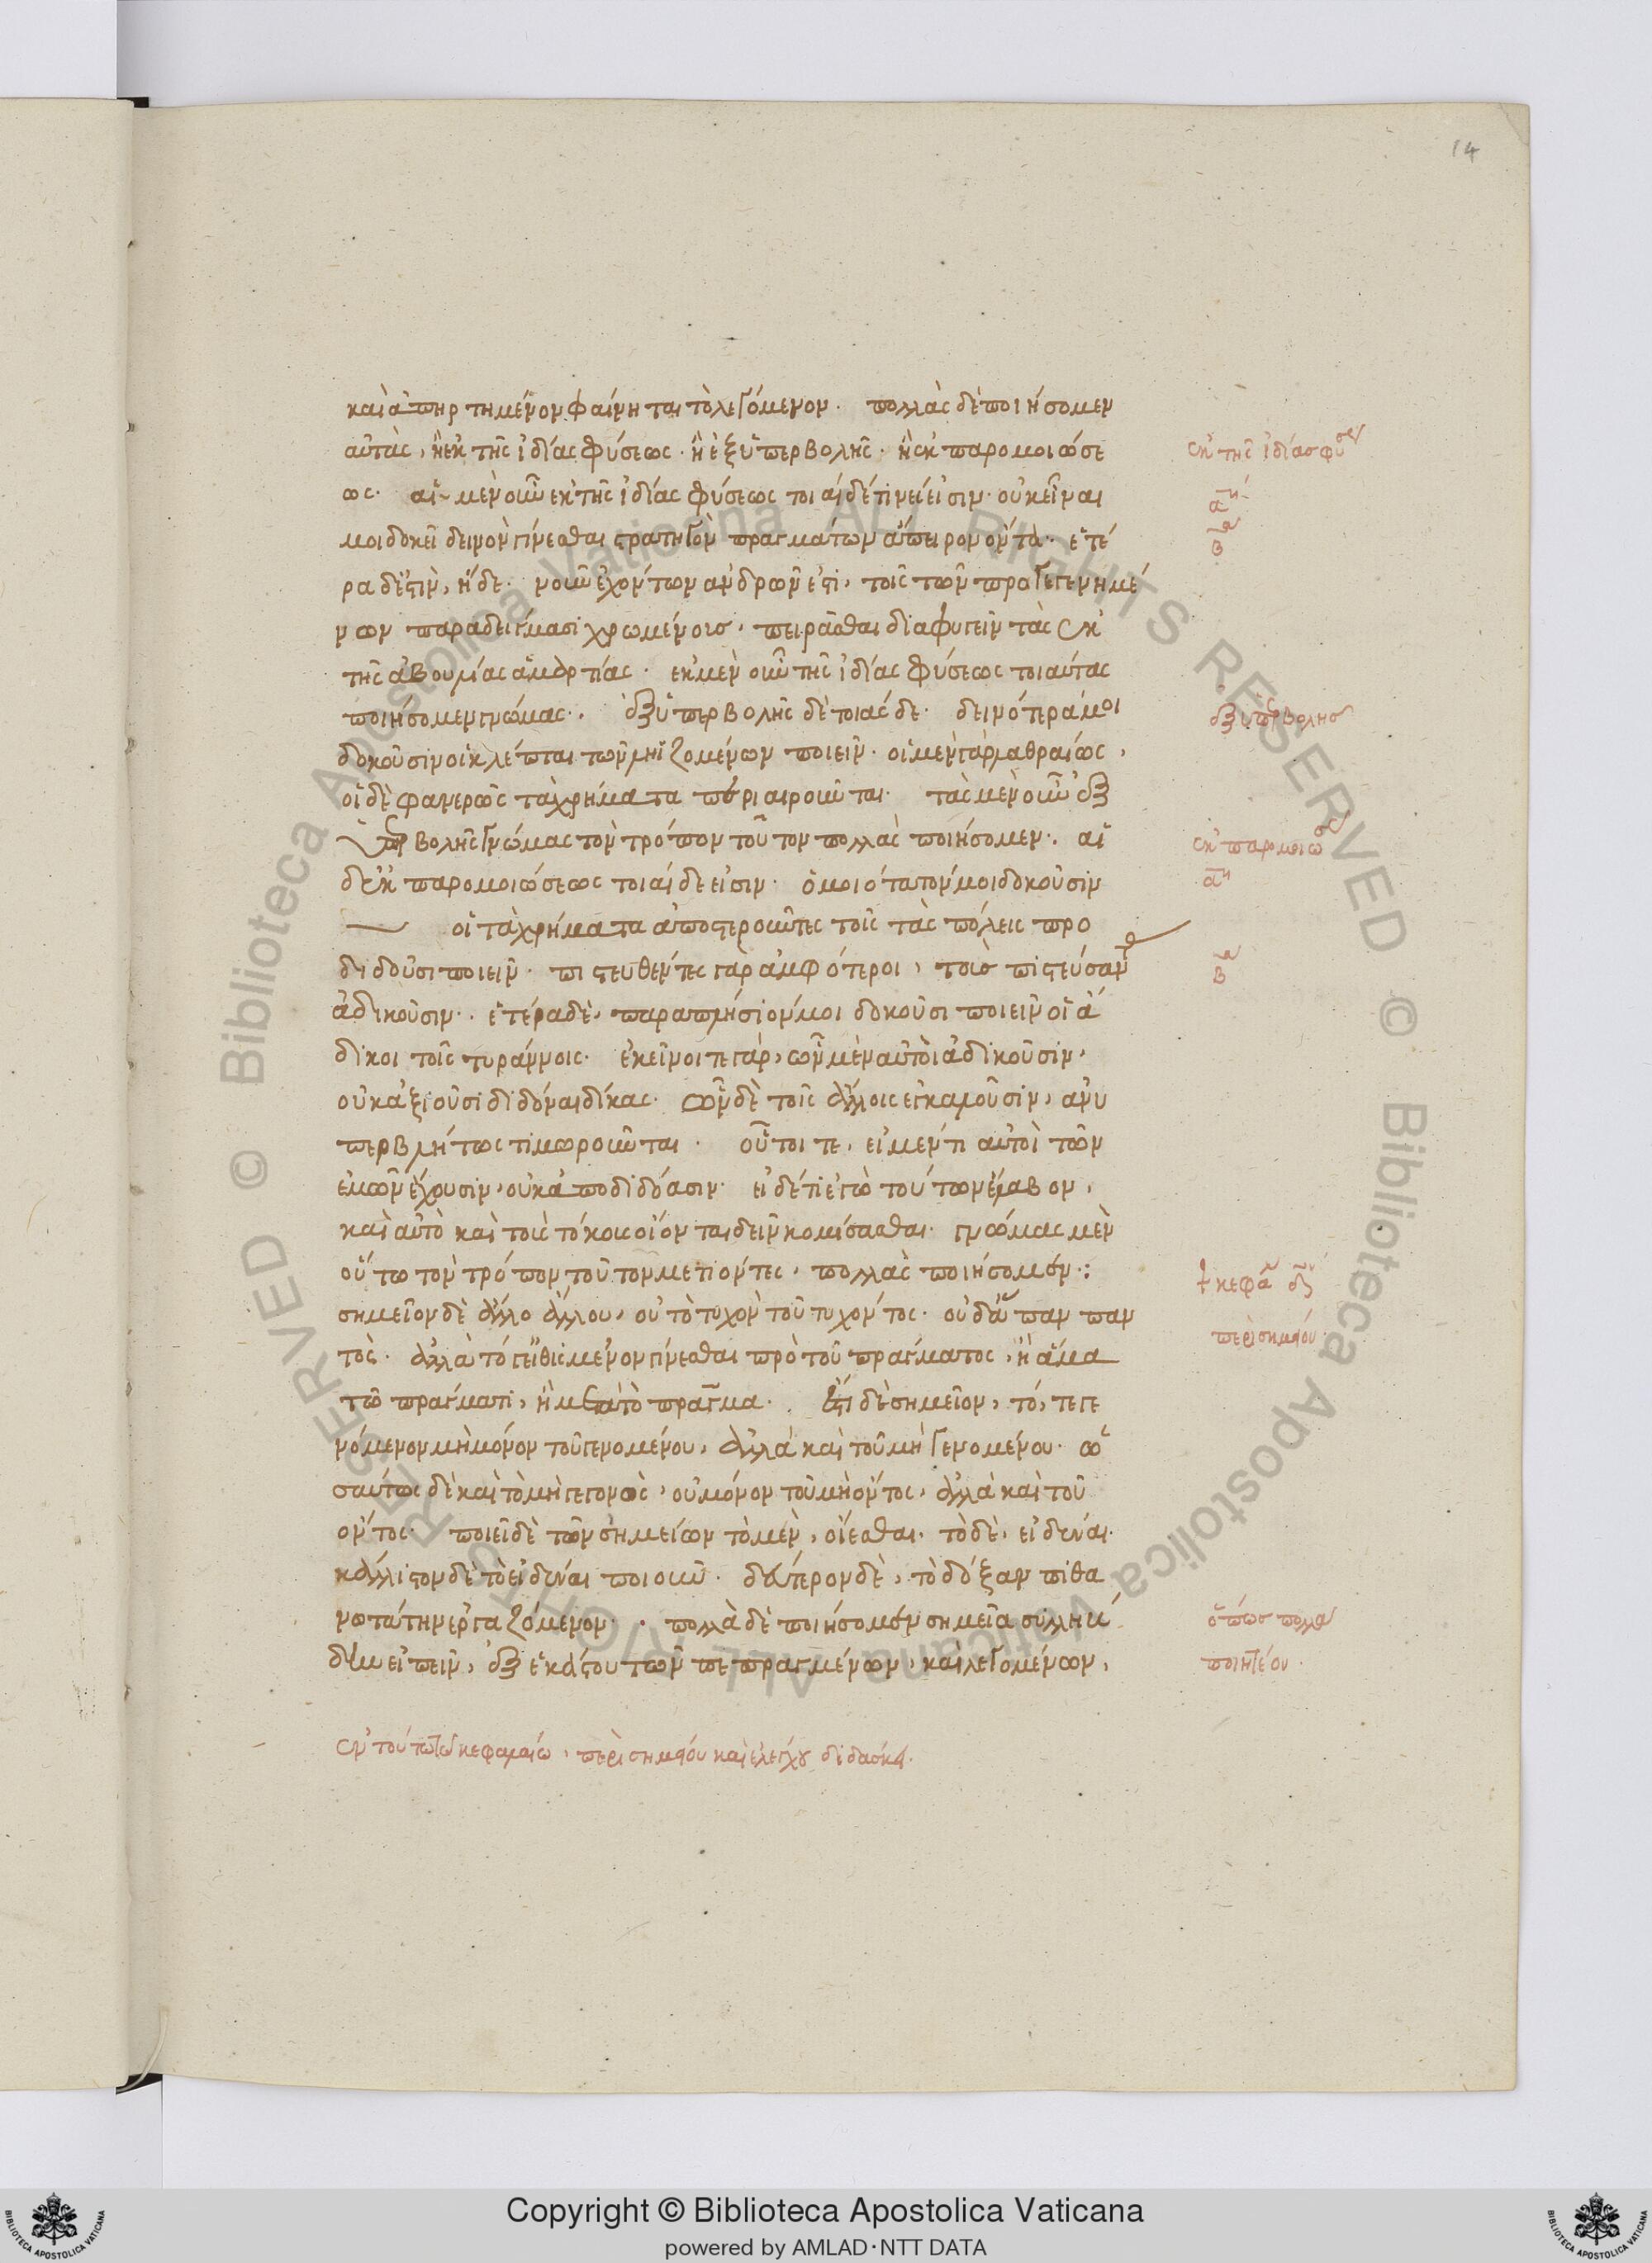 14
καὶ ἀπηρτημένον φαίνηται τὸ λεγόμενον· πολλὰς δὲ ποιήσομεν
αὐτὰς, ἢ ἐκ τῆς ἰδίας φύσεως· ἢ ἐξ ὑπερβολῆς· ἢ ἐκ παρομοιώσε
ως· αἱ μὲν οὖν ἐκ τῆς ἰδίας φύσεως τοιαίδέ τινές εἰσιν· οὐκ εἶναι
μοι δοκεῖ δεινὸν γίνεσθαι στρατηγὸν πραγμάτων ἄπειρον ὄντα· ἑτέ
ρα δέ ἐστιν, ἥδε· νοῦν ἐχόντων ἀνδρῶν ἐστι, τοῖς τῶν προγεγενημέ
νων παραδείγμασι χρωμένοις, πειρᾶσθαι διαφυγεῖν τὰς ἐκ
τῆς ἀβουλίας ἁμαρτίας· ἐκ μὲν οὖν τῆς ἰδίας φύσεως τοιαύτας
ποιήσομεν γνώμας· ἐξ ὑπερβολῆς δὲ τοιάσδε· δεινότερά μοι
δοκοῦσιν οἱ κλέπται τῶν ληϊζομένων ποιεῖν· οἱ μὲν γὰρ λαθραίως,
οἱ δὲ φανερῶς τὰ χρήματα περιαιροῦνται· τὰς μὲν οὖν ἐξ
ὑπερβολῆς γνώμας τὸν τρόπον τοῦτον πολλὰς ποιήσομεν· αἱ
δ' ἐκ παρομοιώσεως τοιαίδε εἰσιν· ὁμοιότατόν μοι δοκοῦσιν
οἱ τὰ χρήματα ἀποστεροῦντες τοῖς τὰς πόλεις προ
διδοῦσι ποιεῖν· πιστευθέντες γὰρ ἀμφότεροι, τοὺς πιστεύσαντας
ἀδικοῦσιν· ἑτέρα δὲ, παραπλήσιόν μοι δοκοῦσι ποιεῖν οἱ ἀ
δικοι τοῖς τυράννοις· ἐκεῖνοί τε γάρ, ὧν μὲν αὐτοὶ ἀδικοῦσιν,
οὐκ ἀξιοῦσι διδόναι δίκας· ὧν δὲ τοῖς ἄλλοις ἐγκαλοῦσιν, ἀνυ
περβλήτως τιμωροῦνται· οὗτοί τε, εἰ μέν τι αὐτοὶ τῶν
ἐμῶν ἔχουσιν, οὐκ ἀποδιδόασιν· εἰ δέ τι ἐγὼ τούτων ἔλαβον,
καὶ αὐτὸ καὶ τοὺς τόκους οἴονται δεῖν κομίσασθαι· γνώμας μὲν
οὕτω τὸν τρόπον τοῦτον μετιόντες, πολλὰς ποιήσομεν·:
σημεῖον δὲ ἄλλο ἄλλου, οὐ τὸ τυχὸν τοῦ τυχόντος· οὐδ' ἅπαν παν
τὸς· ἀλλὰ τό γ' εἰθισμένον γίνεσθαι πρὸ τοῦ πράγματος, ἢ ἅμα
τῷ πράγματι, ἢ μετὰ τὸ πρᾶγμα· ἔστι δὲ σημεῖον, τό, τε γε
νόμενον μὴ μόνον τοῦ γενομένου, ἀλλὰ καὶ τοῦ μὴ γενομένου· ὡ
σαύτως δὲ καὶ τὸ μὴ γεγονὸς, οὐ μόνον τοῦ μὴ ὄντος, ἀλλὰ καὶ τοῦ
ὄντος· ποιεῖ δὲ τῶν σημείων τὸ μὲν, οἴεσθαι· τὸ δὲ, εἰδέναι·
κάλλιστον δὲ τὸ εἰδέναι ποιοῦν· δεύτερον δὲ, τὸ δόξαν πιθα
νωτάτην ἐργαζόμενον· πολλὰ δὲ ποιήσομεν σημεῖα συλλήβ
δην εἰπεῖν, ἐξ ἑκάστου τῶν πεπραγμένων, καὶ λεγομένων,
ἐκ τῆς ἰδίας φύσεως
α
β
ἐξ ὑπερβολῆς
ἐκ παρομοιώσεως
α
β
κεφα
περὶ σημείου
ὅπως πολλὰ
ποιητέον·
ἐν τούτῳ τῷ κεφαλαίῳ, περὶ σημείου καὶ ἐλέγχου διδάσκει·
Copyright © Biblioteca Apostolica Vaticana
powered by AMLAD·NTT DATA